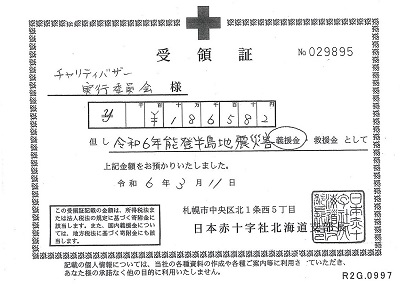 受領証
No 029895
チャリティバザー
実行委員会 様
千 百 十 万 千 百 十 円
¥186582
但し 令和6年能登半島地震災害 義援金・救援金 として
上記金額をお預かりいたしました。
令和 6年 3月 11日
この受領証記載の金額は、所得税法または法人税法の規定に基づく寄附金に該当します。また、国内義援金については、地方税法に基づく寄附金にも該当します。
札幌市中央区北1条西5丁目
日本赤十字社北海道支部
記載の個人情報については、当社の各種資料の作成や各種ご案内等に利用させていただき、
あなた様の承諾なく他の目的に利用いたしません。
R2G.0997